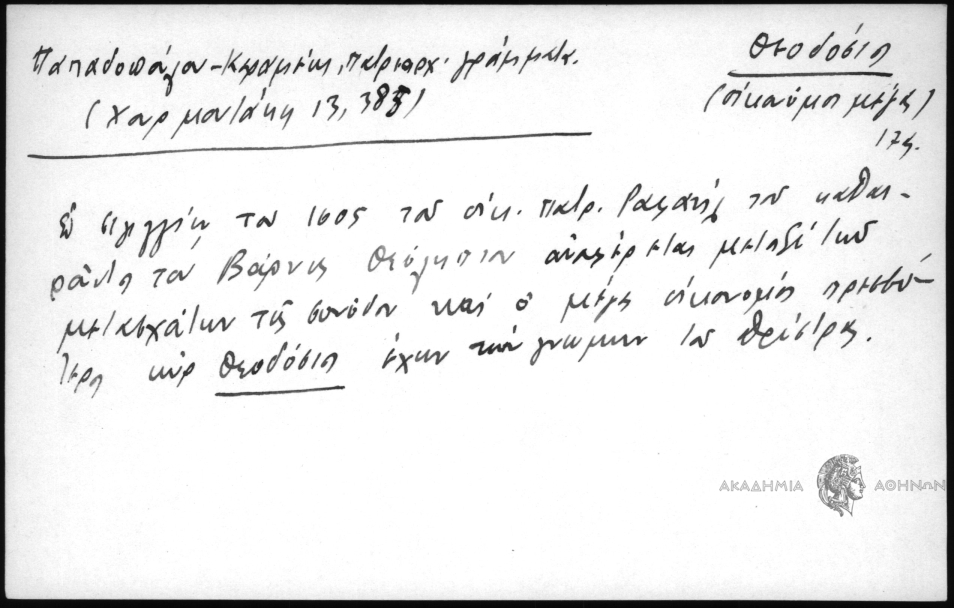 Παπαδοπούλου-Κεραμέως, Πατριαρχ. γράμματα.
(Χαρμανιάκης 13, 385)
Θεοδόσιος
(οἰκονόμος μέγας)
17ς.
Ἐν σιγιλλίῳ τοῦ 1605 τοῦ οἰκ. Πατρ. Ραφαήλ τοῦ καθαι-
ροῦντος τὸν Βάρνης Θεόληπτον ἀναφέρεται μεταξὺ τῶν
μετασχόντων τῆς συνόδου καὶ ὁ μέγας οἰκονόμος πρεσβύ-
τερος κύρ Θεοδόσιος ἔχων τὴν γνώμην τοῦ
ΑΚΑΔΗΜΙΑ ΑΘΗΝΩΝ